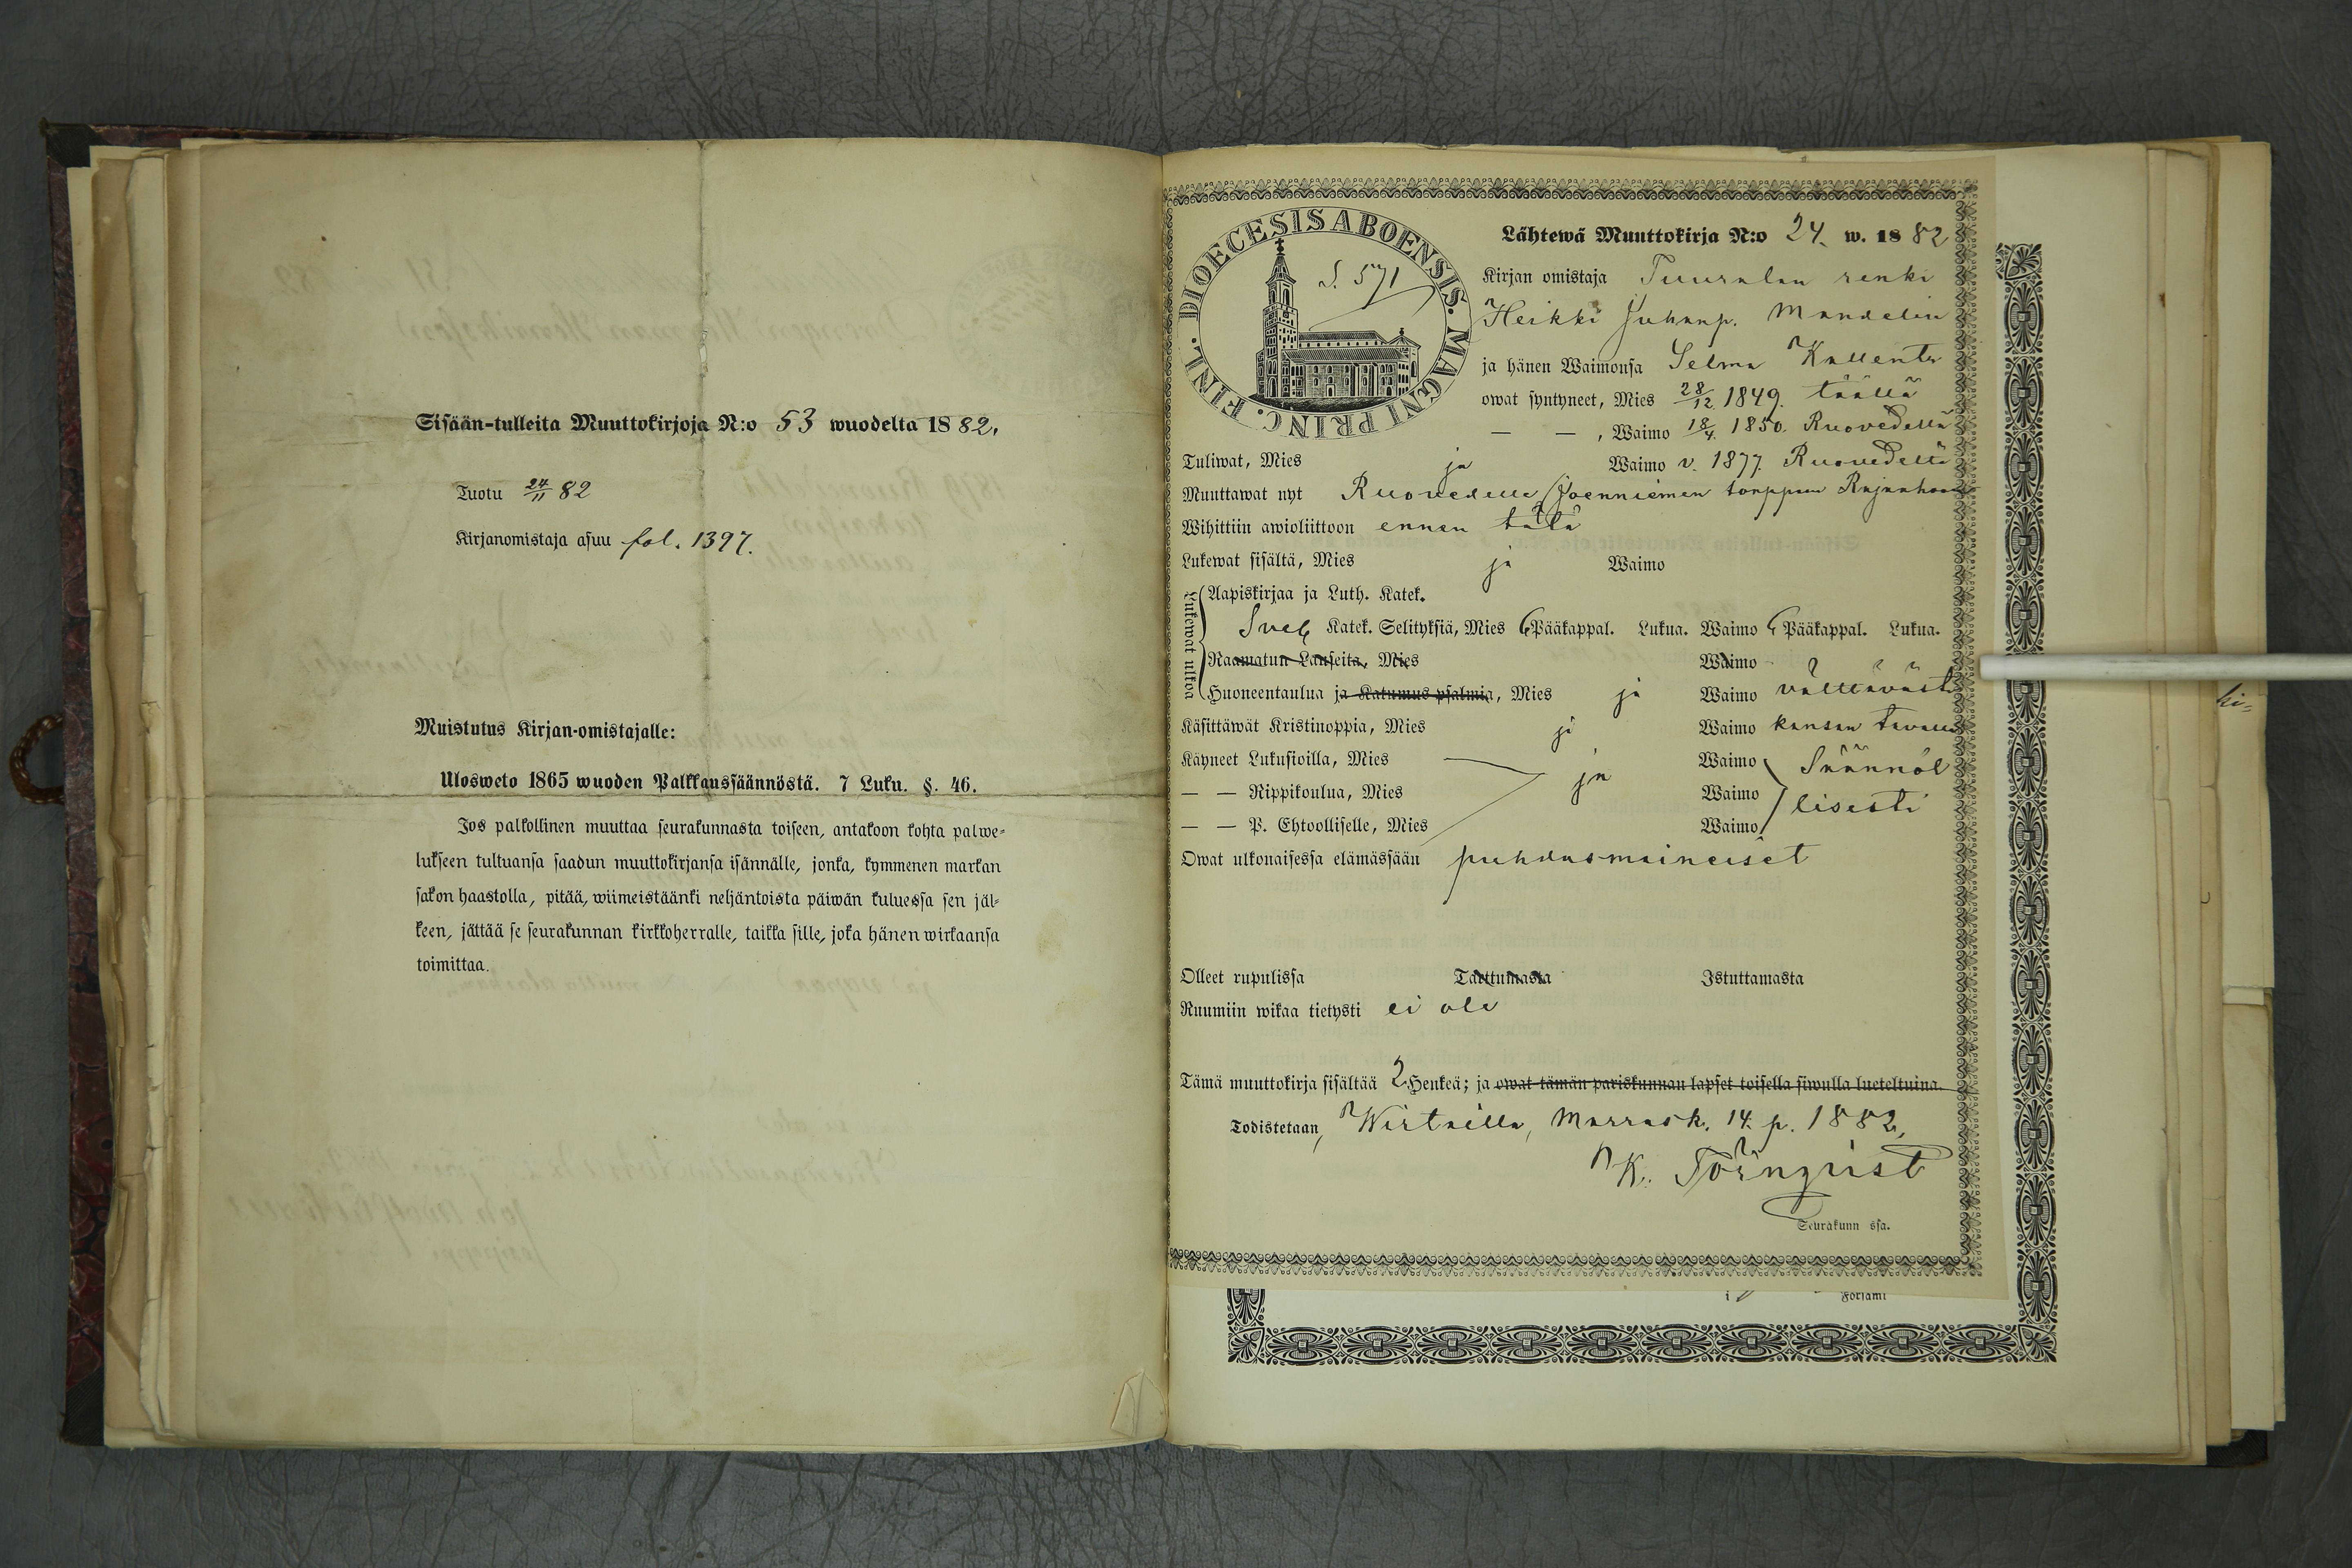 Sisään-tulleita Muuttokirjoja N:o 53 wuodelta 1882.
Tuotu 24/11 82
Kirjanomistaja asuu fol. 1397.
Muistutus Kirjan-omistajalle:
Ulosweto 1865 wuoden Palkkaussäännöstä. 7 Luku. §. 46.
Jos palkollinen muuttaa seurakunnasta toiseen, antakoon kohta palwe-
lukseen tultuansa saadun muuttokirjansa isännälle, jonka, kymmenen markan
sakon haastolla, pitää, wiimeistäänki neljäntoista päiwän kuluessa sen jäl-
keen, jättää se seurakunnan kirkkoherralle, taikka sille, joka hänen wirkaansa
toimittaa.
DIOECESIS ABOENSIS. MAGNI PRINC. FINL.
S. 571
Lähtewä Muuttokirja N:o 24. w. 1882
Kirjan omistaja Tuuralan renki
Heikki Juhanp. Mandelin
ja hänen Waimonsa Selma
owat syntyneet, Mies 28/12 1849. täällä
— — , Waimo 18/4. 1850. Ruovedellä
Tuliwat, Mies ja Waimo v. 1877. Ruovedeltä
Muuttawat nyt Ruovedelle Joenniemen torppaan
Wihittiin awioliittoon ennen tätä
Lukewat sisältä, Mies ja Waimo
Lukewat ulkoa
Aapiskirjaa ja Luth. Katek.
Sveb Katek. Selityksiä, Mies 6 Pääkappal. Lukua. Waimo 6 Pääkappal. Lukua.
Raamatun Lauseita, Mies Waimo
Huoneentaulua ja Katumus-psalmia, Mies ja Waimo välttävästi
Käsittäwät Kristinoppia, Mies ja Waimo kansan tavalla
Käyneet Lukusioilla, Mies ja Waimo Säännöl
— — Rippikoulua, Mies Waimo lisesti
— — P. Ehtoolliselle, Mies Waimo
Owat ulkonaisessa elämässään puhdasmaineiset
Olleet rupulissa Tarttumasta Istuttamasta
Ruumiin wikaa tietysti ei ole
Tämä muuttokirja sisältää 2 Henkeä; ja owat tämän pariskunnan lapset toisella siwulla lueteltuina.
Todistetaan, Wirtailla, Marrask. 14. p. 1882.
K. Törnqvist
Seurakunn ssa.
Församl